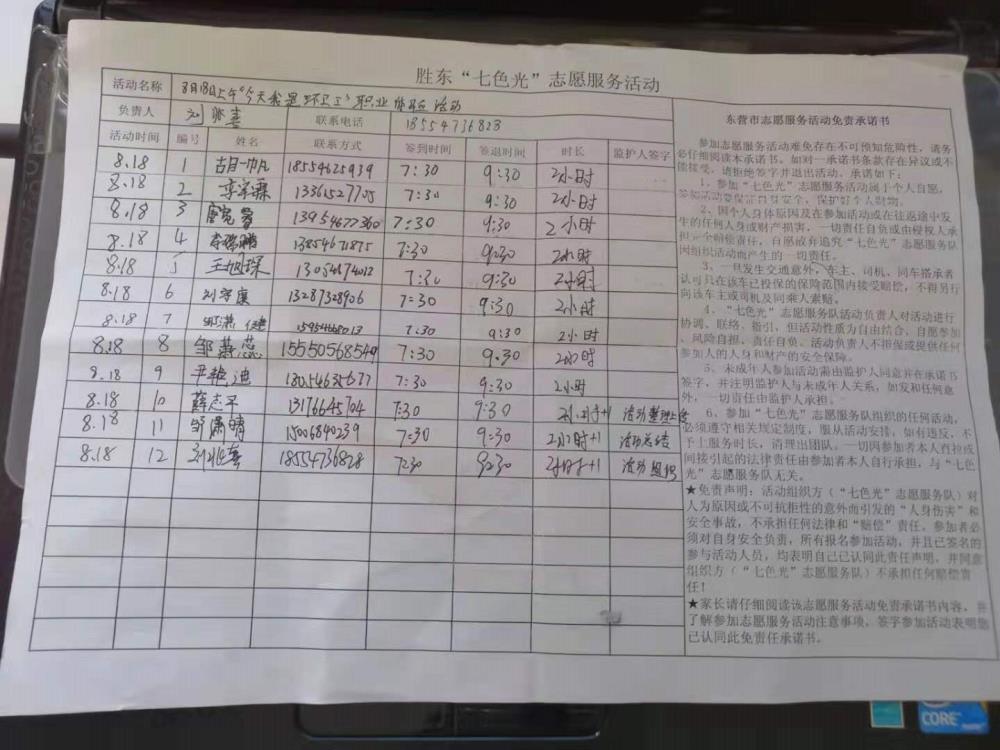 胜东“七色光”志愿服务活动
活动名称 8月18日上午“今天我是环卫工”职业体验活动
负责人 联系电话 18554736828
活动时间 编号 姓名 联系方式 签到时间 签退时间 时长 监护人签字
8.18 1 胡一帆 18554625939 7:30 9:30 2小时
8.18 2 13361527705 7:30 9:30 2小时
8.18 3 13954677360 7:30 9:30 2小时
8.18 4 13854671875 7:30 9:30 2小时
8.18 5 13054674012 7:30 9:30 2小时
8.18 6 刘宇康 13287328906 7:30 9:30 2小时
8.18 7 15954668013 7:30 9:30 2小时
8.18 8 邹蕊 15550568549 7:30 9:30 2小时
8.18 9 尹艳迪 13054635677 7:30 9:30 2小时
8.18 10 薛志平 13176645704 7:30 9:30 2小时+1 活动整理
8.18 11 邹潇晴 15006840239 7:30 9:30 2小时+1 活动总结
8.18 12 18554736828 7:30 9:30 2小时+1 活动组织
东营市志愿服务活动免责承诺书
参加志愿服务活动难免存在不可预知危险性，请务
必仔细阅读本承诺书。如对一承诺书条款存在异议或不
能接受，请拒绝签字并退出活动。承诺如下：
1、参加“七色光”志愿服务活动属于个人自愿，
参加活动要保证自身安全，保护好个人财物。
2、因个人身体原因及在参加活动或在往返途中发
生的任何人身或财产损害，一切责任自负或由侵权人承
担完全赔偿责任，自愿放弃追究“七色光”志愿服务队
因组织活动而产生的一切责任。
3、一旦发生交通意外，车主、司机、同车搭乘者
认可只在该车已投保的保险范围内接受赔偿，不得另行
向该车主或司机及同乘人索赔。
4、“七色光”志愿服务队活动负责人对活动进行
协调、联络、指引，但活动性质为自由结合，自愿参加
、风险自担、责任自负、活动负责人不担保或提供任何
参加人的人身和财产的安全保障。
5、未成年人参加活动需由监护人同意并在承诺书
签字，并注明监护人与未成年人关系，如发和任何意
外，一切责任由监护人承担。
6、参加“七色光”志愿服务队组织的任何活动，
必须遵守相关规定制度，服从活动安排，如有违反，不
予上服务时长，清理出团队。一切因参加者本人直接或
间接引起的法律责任由参加者本人自行承担，与“七色
光”志愿服务队无关。
★免责声明：活动组织方（“七色光”志愿服务队）对
人为原因或不可抗拒性的意外而引发的“人身伤害”和
安全事故，不承担任何法律和“赔偿”责任，参加者必
须对自身安全负责，所有报名参加活动，并且已签名的
参与活动人员，均表明自己已认同此责任声明，并同意
组织方（“七色光”志愿服务队）不承担任何赔偿责
任！
★家长请仔细阅读该志愿服务活动免责承诺书内容，并
了解参加志愿服务活动注意事项，签字参加活动表明您
已认同此免责任承诺书。
CORE